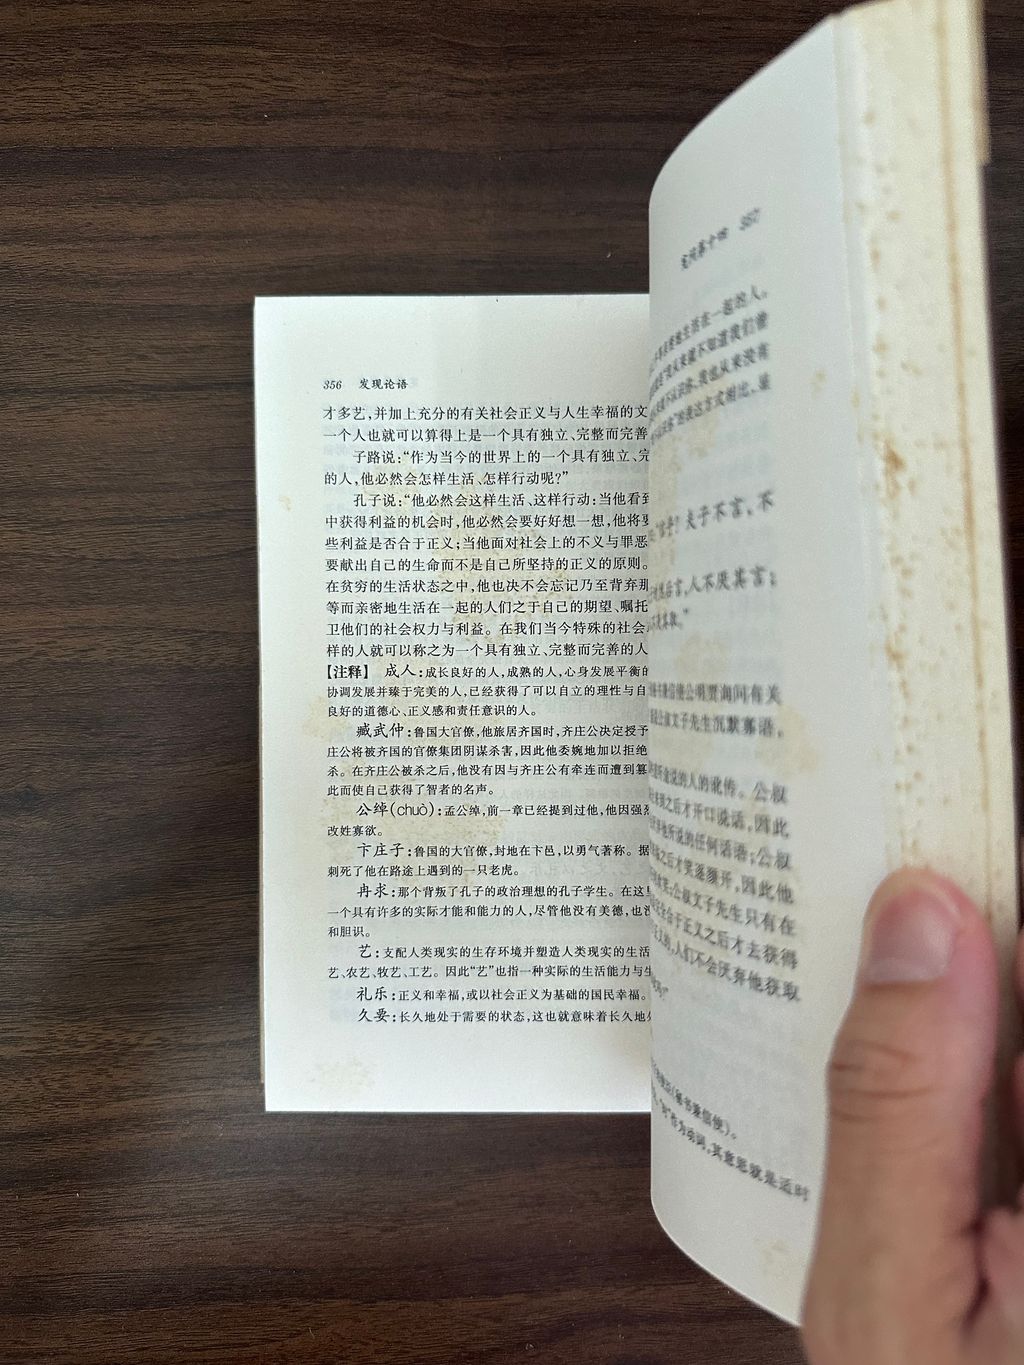 356 发现论语
才多艺,并加上充分的有关社会正义与人生幸福的文
一个人也就可以算得上是一个具有独立、完整而完善
子路说:“作为当今的世界上的一个具有独立、完
的人,他必然会怎样生活、怎样行动呢?”
孔子说:“他必然会这样生活、这样行动:当他看到
中获得利益的机会时,他必然会要好好想一想,他将要
些利益是否合于正义;当他面对社会上的不义与罪恶
要献出自己的生命而不是自己所坚持的正义的原则。
在贫穷的生活状态之中,他也决不会忘记乃至背弃那
等而亲密地生活在一起的人们之于自己的期望、嘱托
卫他们的社会权力与利益。在我们当今特殊的社会
样的人就可以称之为一个具有独立、完整而完善的人
【注释】 成人:成长良好的人,成熟的人,心身发展平衡的
协调发展并臻于完美的人,已经获得了可以自立的理性与自
良好的道德心、正义感和责任意识的人。
臧武仲:鲁国大官僚,他旅居齐国时,齐庄公决定授予
庄公将被齐国的官僚集团阴谋杀害,因此他委婉地加以拒绝
杀。在齐庄公被杀之后,他没有因与齐庄公有牵连而遭到篡
此而使自己获得了智者的名声。
公绰(chuò):孟公绰,前一章已经提到过他,他因强
改姓寡欲。
卞庄子:鲁国的大官僚,封地在卞邑,以勇气著称。据
刺死了他在路途上遇到的一只老虎。
冉求:那个背叛了孔子的政治理想的孔子学生。在这里
一个具有许多的实际才能和能力的人,尽管他没有美德,也没
和胆识。
艺:支配人类现实的生存环境并塑造人类现实的生活
艺、农艺、牧艺、工艺。因此“艺”也指一种实际的生活能力与生
礼乐:正义和幸福,或以社会正义为基础的国民幸福。
久要:长久地处于需要的状态,这也就意味着长久地处
宪问第十四 357
地生活在一起的人。
从来就不知道我们曾
不认识你,我也从来没有
的表达方式相比,显
乎?夫子不言,不
然后言,人不厌其言;
公明贾询问有关
公叔文子先生沉默寡语,
所说的人的讹传。公叔
之后才开口说话,因此
所说的任何话语;公叔
之后才笑逐颜开,因此他
公叔文子先生只有在
合于正义之后才去获得
人们不会厌弃他获取
(秘书兼信使)。
作为动词,其意思就是适时